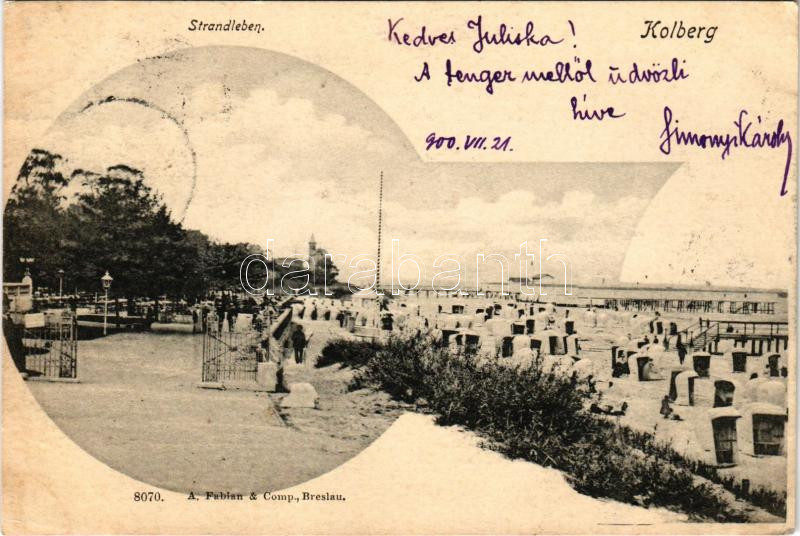 Strandleben.
Kolberg
Kedves Juliska!
A tenger mellől üdvözli
híve
Simonyi Károly
900.VII.21.
darabanth
8070. A. Fabian & Comp., Breslau.